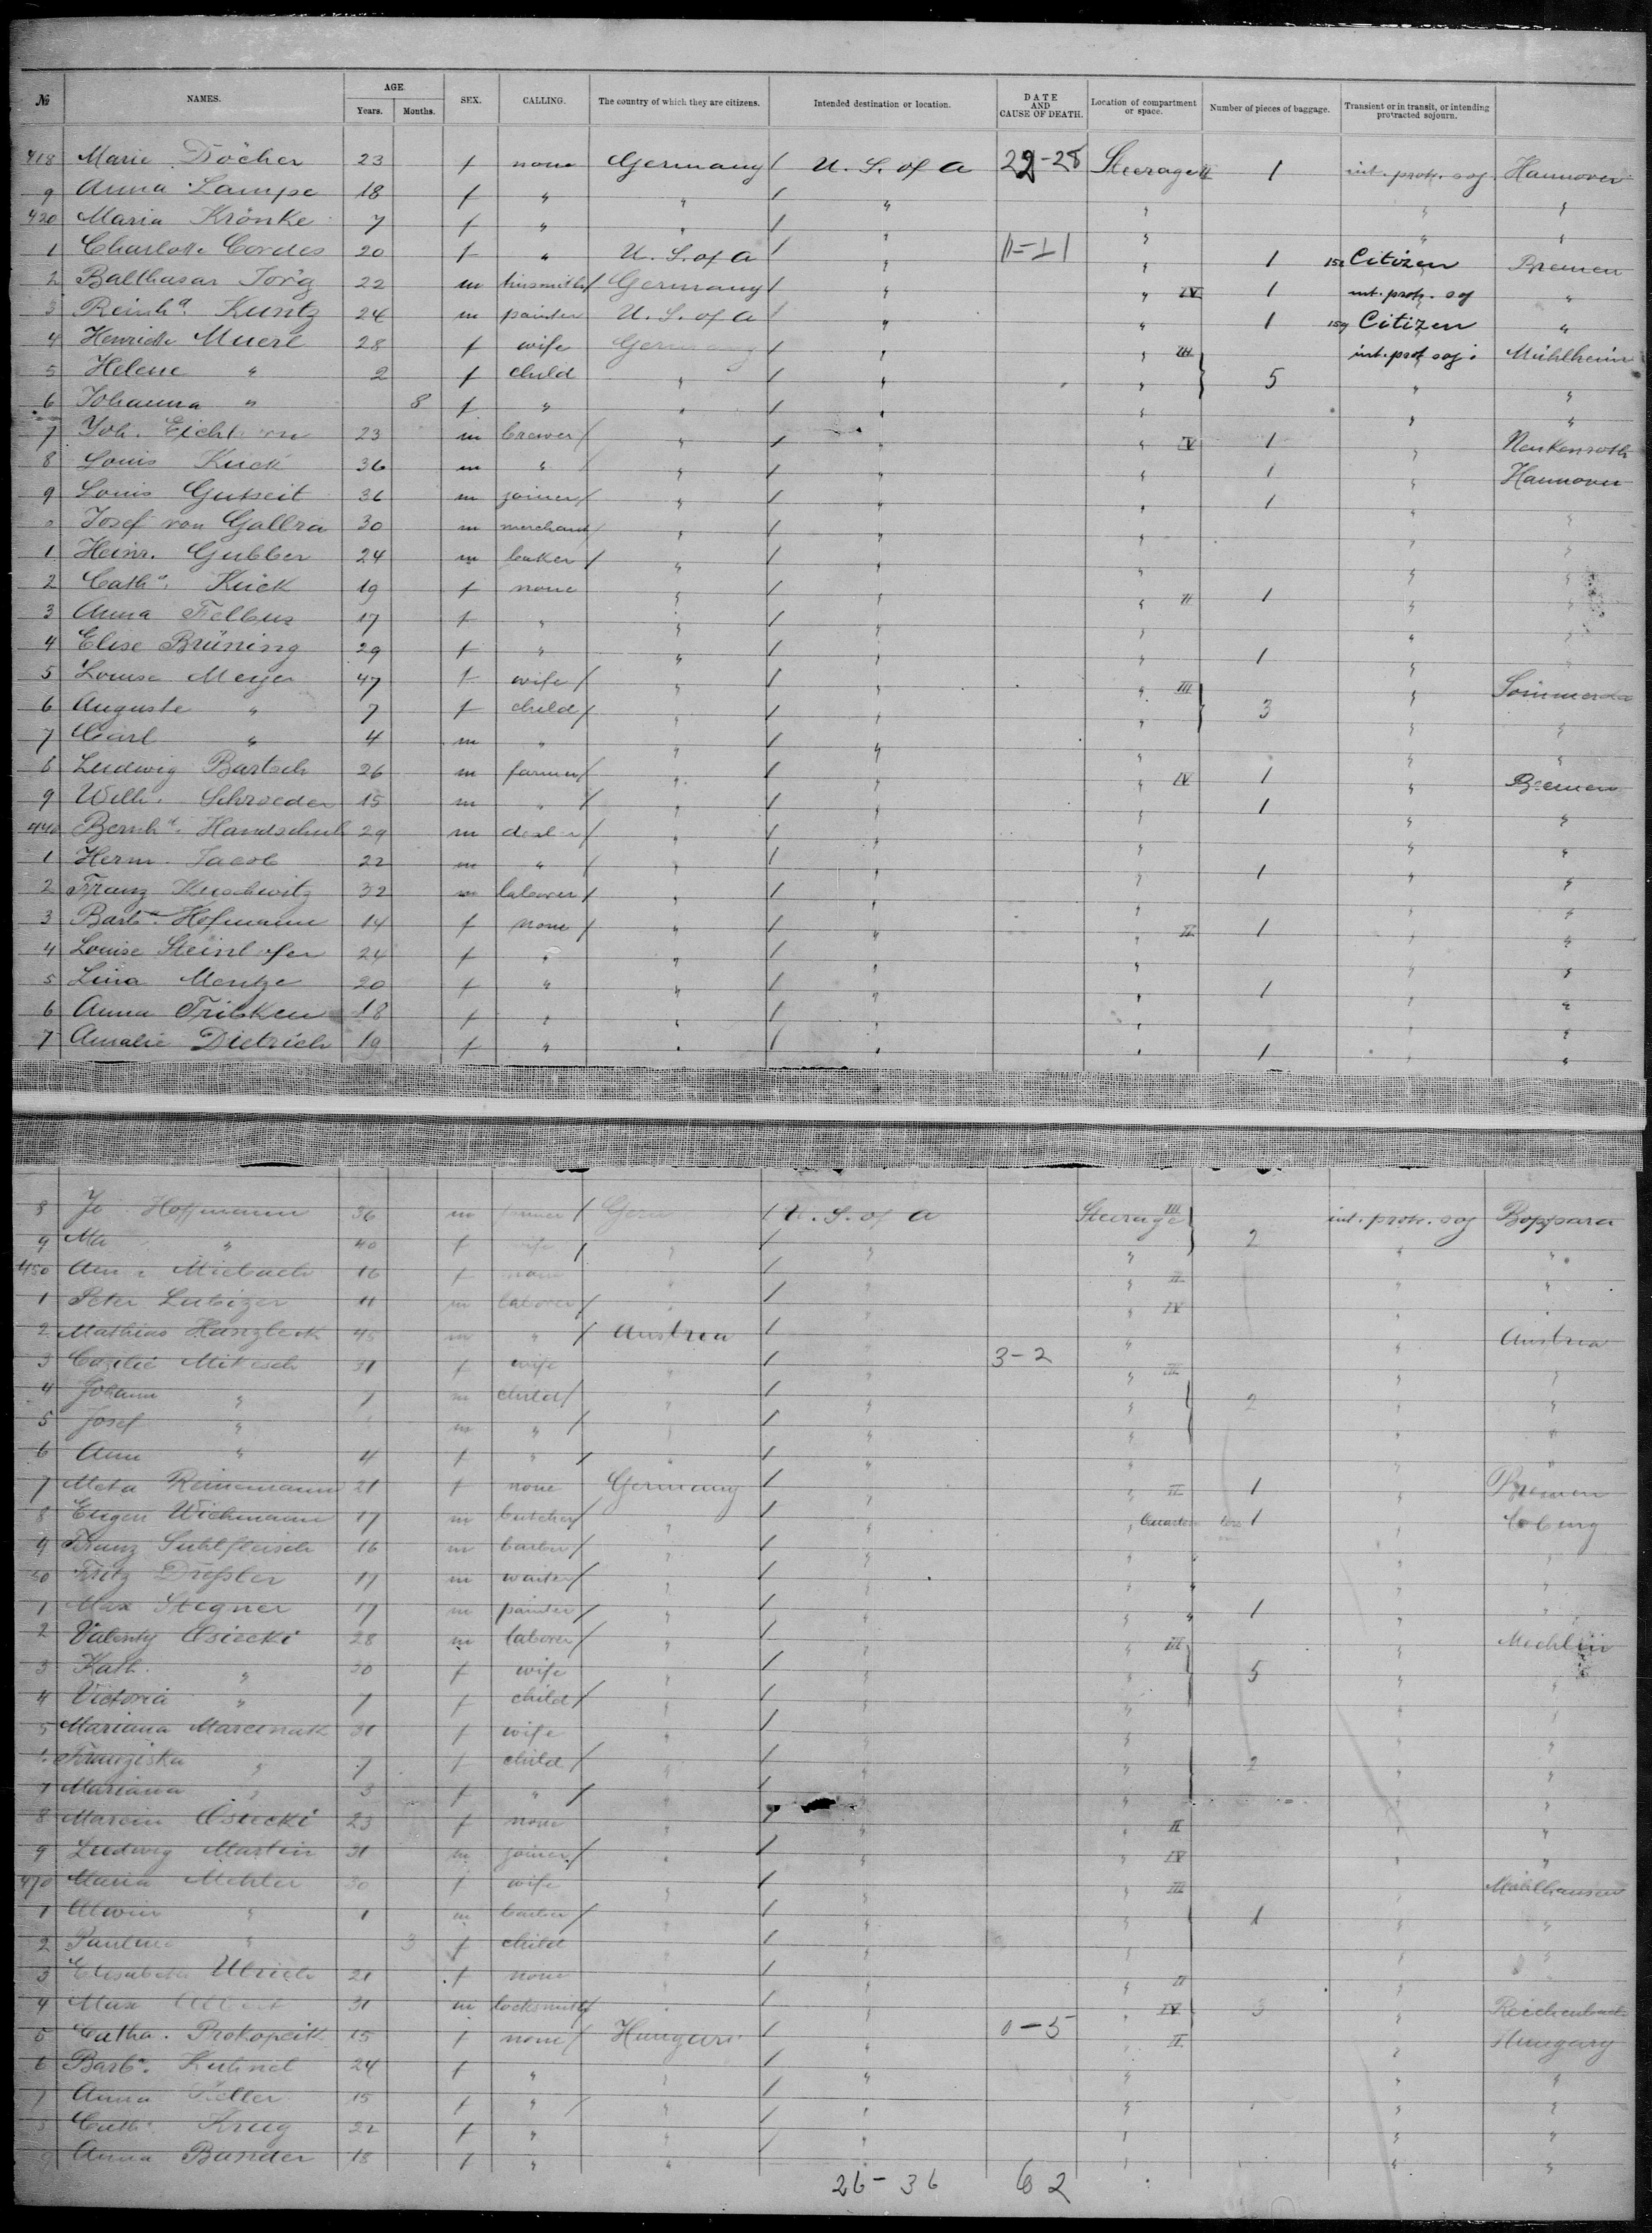 № NAMES. AGE. Years. Months. SEX. CALLING. The country of which they are citizens. Intended destination or location. DATE AND CAUSE OF DEATH. Location of compartment or space. Number of pieces of baggage. Transient or in transit, or intending protracted sojourn.
418 Marie Döscher 23 f none Germany / U. S. of A 22-28 Steerage II 1 int. protr. soj. Hannover
9 Anna Lampe 18 f " " / " " " "
420 Maria Krönke 7 f " " / " " " "
1 Charlotte Cordes 20 f " U. S. of A / " 11=11 " 1 Citizen Bremen
2 Balthasar Jörg 22 m tinsmith / Germany / " " IV 1 int. protr. soj "
3 Reinhd. Kuntz 24 m painter U. S. of A / " " 1 159 Citizen "
4 Henriette Muerl 28 f wife Germany / " " III int. prot soj. Mühlheim
5 Helene " 2 f child " / " " 5 " "
6 Johanna " 8 f " " / " " " "
7 Joh. 23 m brewer / " / " " IV 1 " Neukenroth
8 Louis Kuck 36 m " / " / " " 1 " Hannover
9 Louis Gutseit 36 m joiner / " / " " 1 " "
0 Josef von Gallra 30 m merchant / " / " " " "
1 Heinr. Gubber 24 m baker / " / " " " "
2 Catha. Kück 19 f none " / " " II 1 " "
3 Anna Tielbus 17 f " " / " " " "
4 Elise Brüning 29 f " " / " " 1 " "
5 Louise Meyer 47 f wife / " / " " III " Sömmerda
6 Auguste " 7 f child / " / " " 3 " "
7 Carl " 4 m " " / " " " "
8 Ludwig Bartsch 26 m farmer / " / " " IV 1 " Bremen
9 Wilh. Schroeder 15 m " / " / " " 1 " "
440 Bernhd. Handschuh 29 m dealer / " / " " " "
1 Herm. Jacob 22 m " / " / " " 1 " "
2 Franz Kuschwitz 32 m laborer / " / " " " "
3 Barba. Hofmann 14 f none / " / " " II 1 " "
4 Louise 24 f " " / " " " "
5 Lina Mentze 20 f " " / " " 1 " "
6 Anna Tribken 18 f " " / " " " "
7 Amalie Dietrich 19 f " " / " " 1 " "
8 Hoffmann 36 m / / U. S. of A Steerage III int. protr. soj Boppard
9 " 40 f wife / " / " " 2 " "
450 Miebach 16 f none " / " " II " "
1 Peter Lubizer 11 m laborer / " / " " IV " "
2 Mathias Hanzleck 45 m " / Austria / " " " Austria
3 Mikesch 31 f wife " / " 3-2 " III " "
4 Johann " 7 m child / " / " " 2 " "
5 Josef " m " / " / " " " "
6 Ann " 4 f " / " / " " " "
7 Meta Reinemann 21 f none Germany / " " II 1 " Bremen
8 Eugen Wichmann 17 m butcher / " / " " 1 " Coburg
9 Franz Suhlfleisch 16 m barber / " / " " " "
60 Fritz Dreßler 17 m waiter / " / " " " " "
1 Max Stegner 17 m painter / " / " " " 1 " "
2 Valenty Osiecki 28 m laborer / " / " " III " Mechlin
3 Kath. " 30 f wife " / " " 5 " "
4 Victoria " 7 f child / " / " " " "
5 Mariana Marcinak 31 f wife " / " " " "
6 Franziska " 7 f child / " / " " 2 " "
7 Mariana " 3 f " / " / " " " "
8 Marcin Osiecki 23 f none " / " " II " "
9 Ludwig Martin 31 m joiner / " / " " IV " "
470 Maria Mehler 30 f wife " / " " III " Mühlhausen
1 Alwin " 1 m barber / " / " " 1 " "
2 Pauline " 3 f child " / " " " "
3 Elisabeth Ulrich 21 f none " / " " II " "
4 Max Albert 31 m locksmith / " / " " IV 3 " Reichenbach
5 Catha. Prokopcik 15 f none / Hungary / " 0-5 " II " Hungary
6 Barba. 24 f " " / " " " "
7 Anna 15 f " / " / " " " "
8 Catha. Krug 22 f " " / " " " "
9 Anna Bander 18 f " " / " " " "
26-36 62